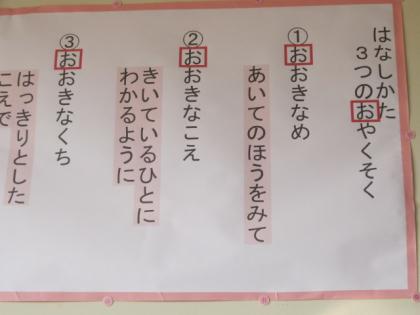 はなしかた
３つのおやくそく
①おおきなめ
あいてのほうをみて
②おおきなこえ
きいているひとに
わかるように
③おおきなくち
はっきりとした
こえで